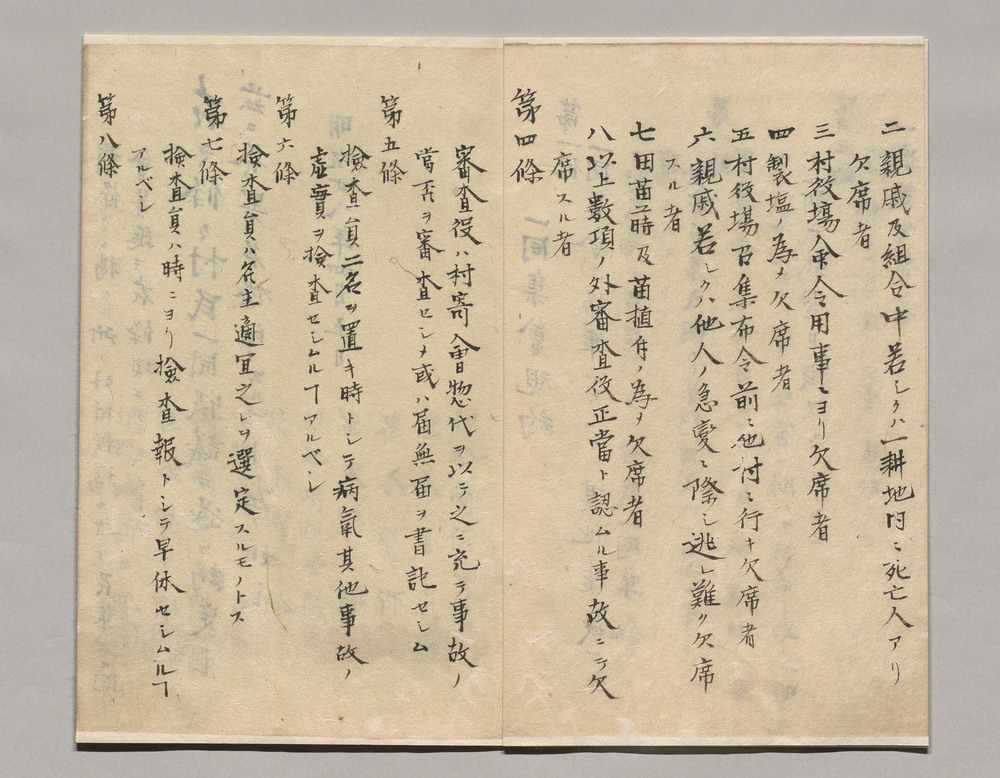 二 親戚及組合中若シクハ一耕地内ニ死亡人アリ
欠席者
三 村役場ノ命令用事ニヨリ欠席者
四 製塩ノ為メ欠席者
五 村役場召集布令前ニ他村ニ行キ欠席者
六 親戚若シクハ他人ノ急変ニ際シ逃レ難ク欠席
スル者
七 田苗蒔及苗植付ノ為メ欠席者
八 以上数項ノ外審査役正當ト認ムル事故ニテ欠
席スル者
第四條
審査役ハ村寄會惣代ヲ以テ之ニ充テ事故ノ
當否ヲ審査セシメ或ハ届無届ヲ書記セシム
第五條
撿査員二名ヲ置キ時トシテ病氣其他事故ノ
虚實ヲ撿査セシムルヿアルベシ
第六條
撿査員ハ名主適宜之レヲ選定スルモノトス
第七條
撿査員ハ時ニヨリ撿査報トシテ早休セシムルヿ
アルベシ
第八條